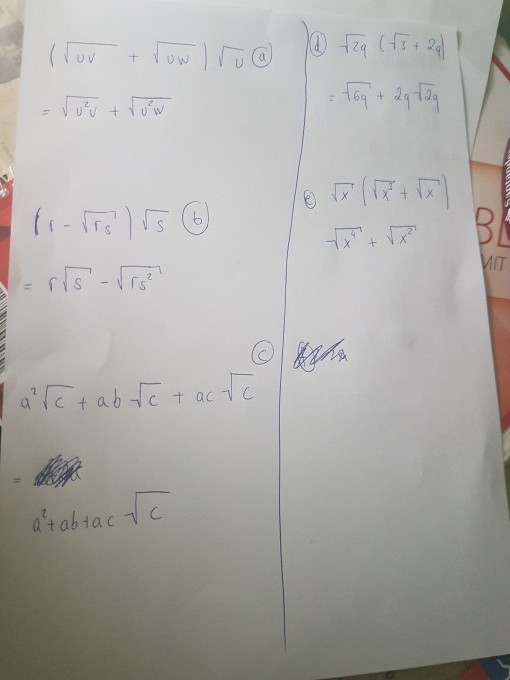 (√uv + √uw) √u (a)
= √u²v + √u²w
(r - √rs) √s (b)
= r√s - √rs²
(c)
a²√c + ab√c + ac√c
=
a²+ab+ac √c
(d) √2q (√3 + 2q)
= √6q + 2q√2q
(e) √x (√x³ + √x)
√x⁴ + √x²